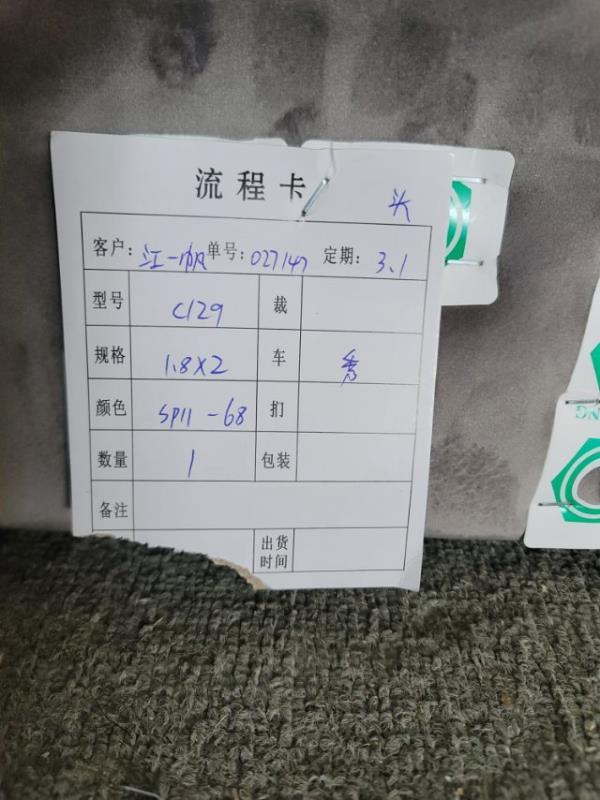 流程卡 头
客户: 江一帆 单号: 027147 定期: 3.1
型号 C129 裁
规格 1.8X2 车 秀
颜色 SP11-68 扪
数量 1 包装
备注
出货
时间